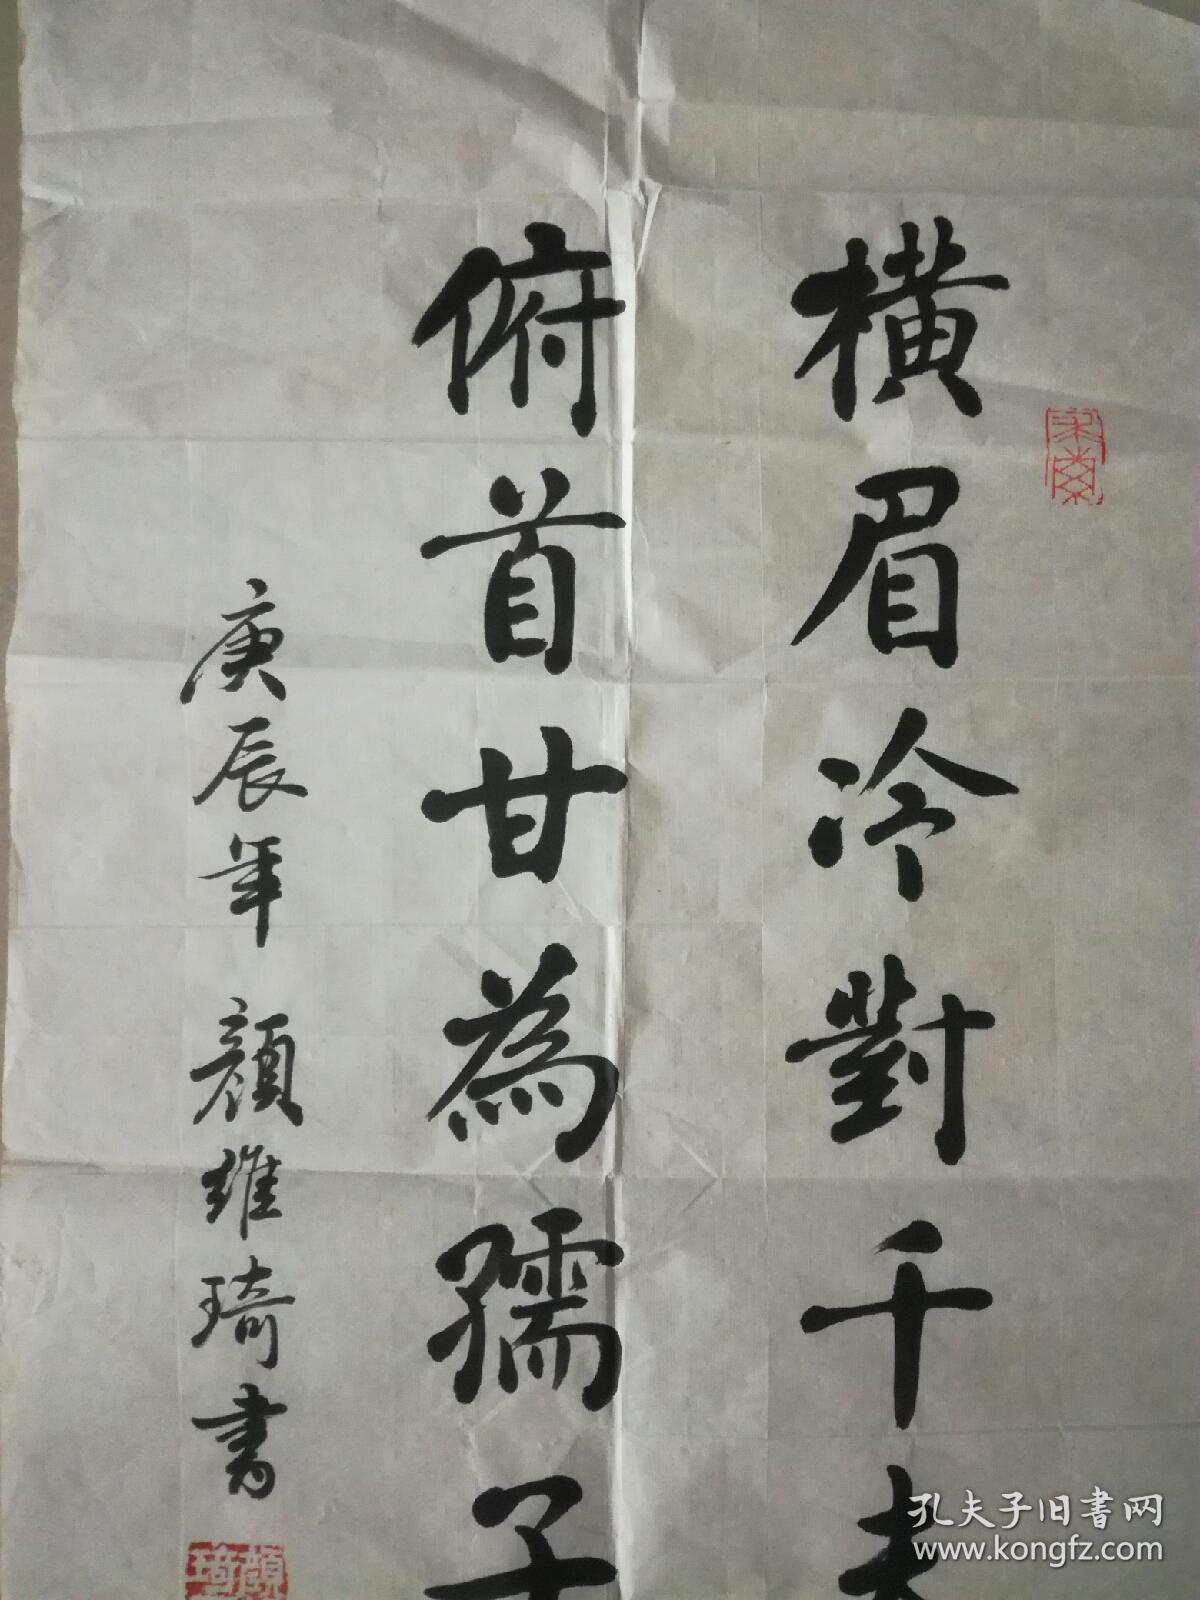 橫眉冷對千夫
俯首甘為孺子
庚辰年 顏維琦書
孔夫子旧書网
www.kongfz.com